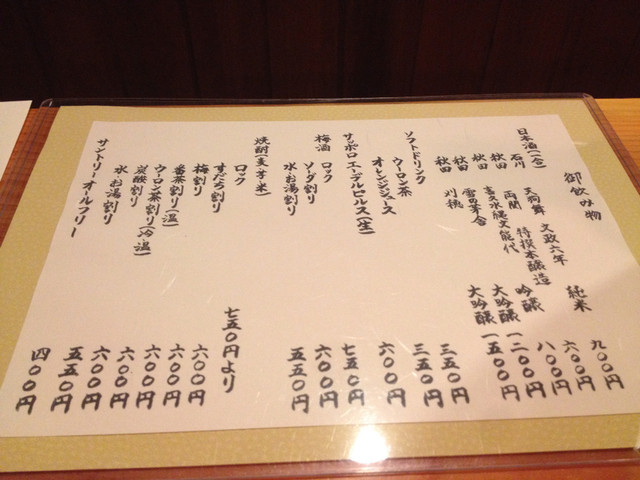 御飲み物
日本酒(一合)
石川 天狗舞 文政六年 純米 九〇〇円
秋田 両関 特撰本醸造 六〇〇円
秋田 喜久水縄文能代 吟醸 八〇〇円
秋田 雪の茅舎 大吟醸 一二〇〇円
秋田 刈穂 大吟醸 一五〇〇円
ソフトドリンク
ウーロン茶 三五〇円
オレンジジュース 三五〇円
サッポロ エーデルピルス(生) 六〇〇円
梅酒 ロック 七五〇円
ソーダ割り 六〇〇円
水お湯割り 五五〇円
焼酎(麦・芋・米)
ロック 七五〇円より
すだち割り 六〇〇円
梅割り 六〇〇円
番茶割り(温) 六〇〇円
ウーロン茶割り(冷・温) 六〇〇円
炭酸割り 六〇〇円
水お湯割り 五五〇円
サントリーオールフリー 四〇〇円